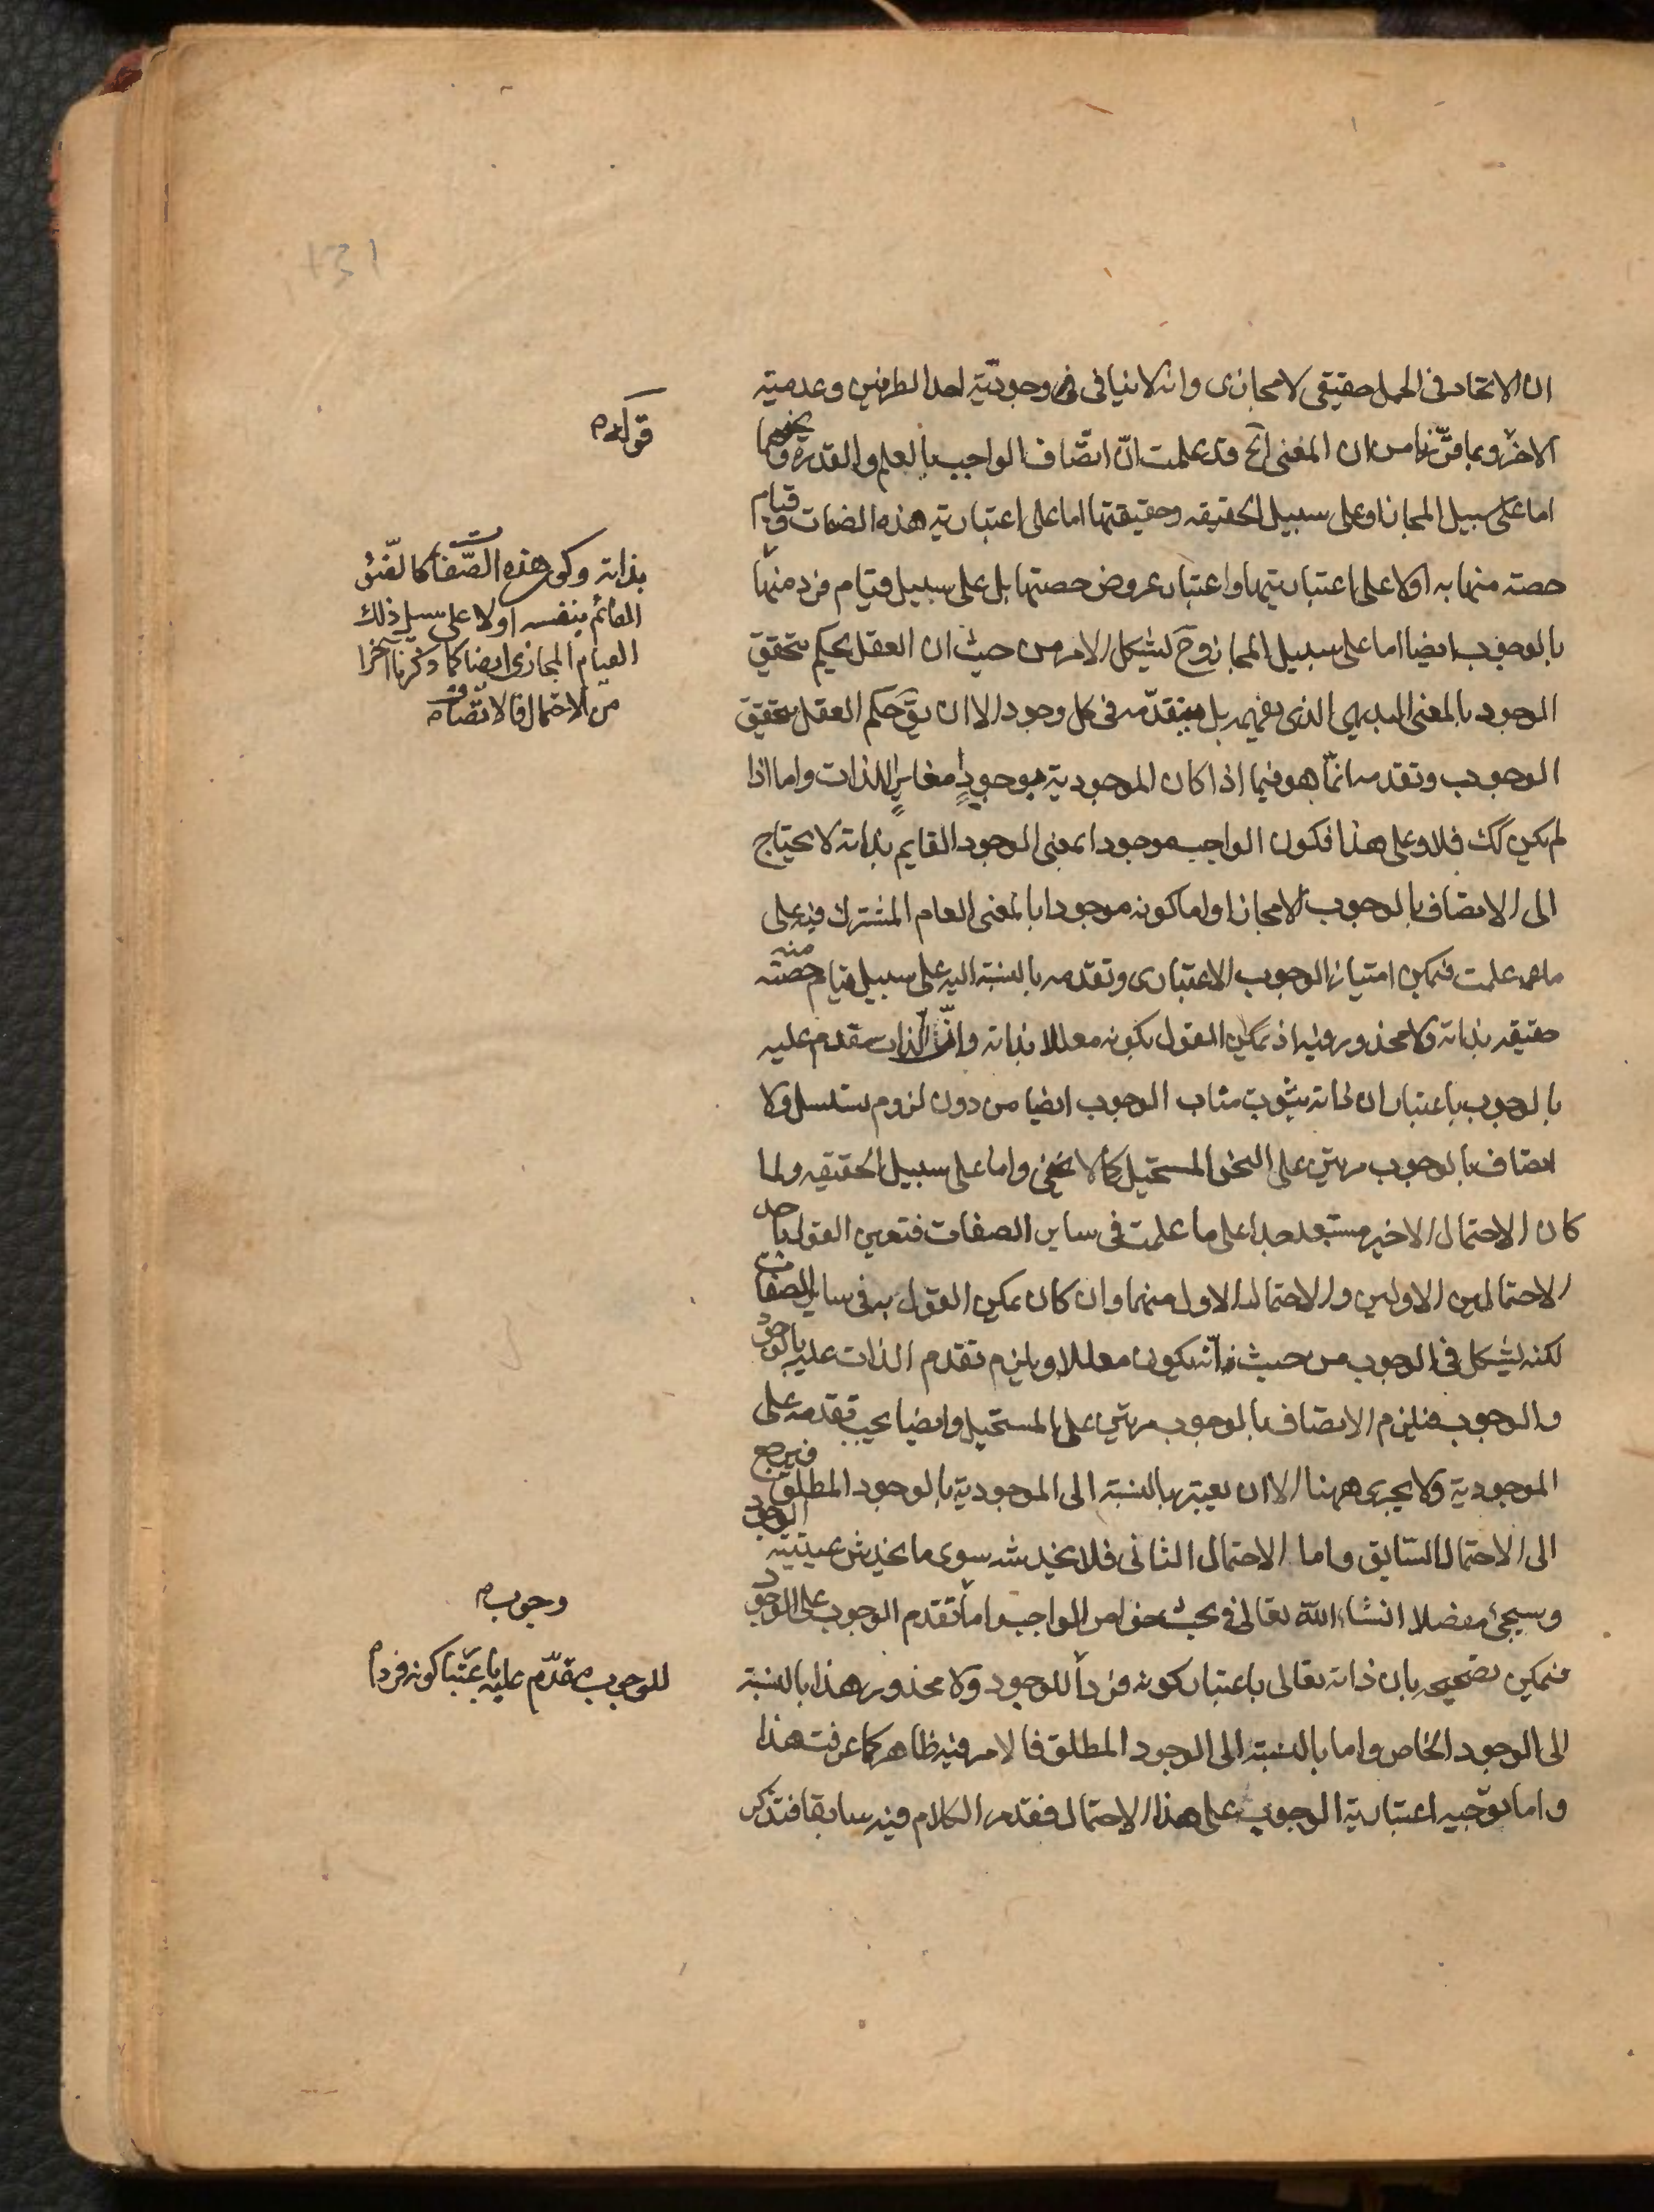 ان الاتحاد فى الحمل حقيقى لا مجازى وانه لا ينافى وجوديّة احد الطرفين وعدمية
الاخر وبما قرّرنا من ان المعنى الخ قد علمت انّ اتصاف الواجب بالعلم والقدرة ونحوهما
اما على سبيل المجاز او على سبيل الحقيقه وحقيقتها اما على اعتبارية هذه الصفات وقيام
حصته منها به او لا على اعتباريتها واعتبار عروض حصتها بل على سبيل قيام فرد منها
بالوجوب ايضا اما على سبيل المجاز وح يشكل الامر من حيث ان العقل يحكم بتحقق
الوجود بالمعنى البديهى الذى يفهمه بل بتقدّمه فى كل وجود الا ان يق حكم العقل بتحقق
الوجوب وتقدمه انّما هو فيما اذا كان الموجودية بوجودٍ مغايرٍ للذات واما اذا
لم يكن كك فلا وعلى هذا فكون الواجب موجودا بمعنى الوجود القايم بذاته لا يحتاج
الى الاتصاف بالوجوب الا مجازا واما كونه موجودا بالمعنى العام المشترك فيه على
ما علمت فيمكن امتياز الوجوب الاعتبارى وتقدمه بالنسبة اليه على سبيل قيام حصته منه
حقيقه بذاته ولا محذور فيه اذ يمكن القول بكونه معللا بذاته وانّ الذات مقدم عليه
بالوجوب باعتبار ان ذاته ينوب مناب الوجوب ايضا من دون لزوم تسلسل ولا
اتصاف بالوجوب مرتين على النحو المستحيل كما لا يخفى واما على سبيل الحقيقه ولما
كان الاحتمال الاخير مستبعد جدا على ما علمت فى ساير الصفات فتعين القول باحد
الاحتمالين الاولين والاحتمال الاول منهما وان كان يمكن القول به فى ساير الصفات
لكنه يشكل فى الوجوب من حيث انّه يكون معللا ويلزم تقدم الذات عليه بالوجود
والوجوب فيلزم الاتصاف بالوجوب مرتين على المستحيل وايضا يجب تقدمه على
الموجودية ولا يجرى ههنا الا ان يعتبر بالنسبة الى الموجودية بالوجود المطلق فيرجع
الى الاحتمال السّابق واما الاحتمال الثانى فلا يخدشه سوى ما يخدش عينيّة الوجود
وسيجئ مفصلا انشاء اللّه تعالى فى بحث خواص الواجب واما تقدم الوجوب على الوجود
فيمكن تصحيحه بان ذاته تعالى باعتبار كونه فرداً للوجود ولا محذور هذا بالنسبة
الى الوجود الخاص واما بالنسبة الى الوجود المطلق فالامر فيه ظاهر كما عرفت هذا
واما توجيه اعتبارية الوجوب على هذا الاحتمال فقد مر الكلام فيه سابقا فتذكر
قوله
بذاته وكون هذه الصّفات كالضّوء
القائم بنفسه اولا على سبيل ذلك
القيام المجازى ايضا كما ذكرنا آخرا
من الاحتمال فالاتصاف
وجوب
للوجوب مقدّم عليه باعتبار كونه فردا
131